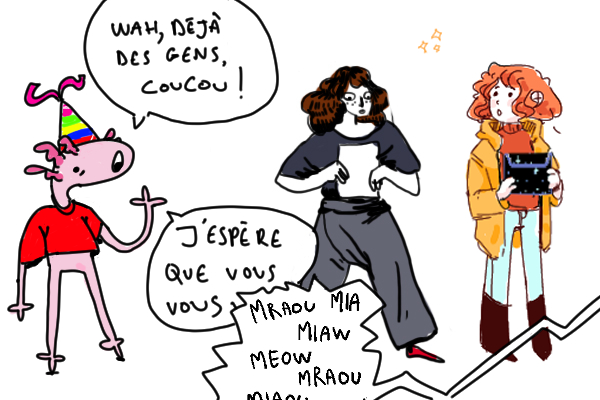 WAH, DÉJÀ
DES GENS,
COUCOU !
J'ESPÈRE
QUE VOUS
VOUS
MRAOU MIA
MIAW
MEOW
MRAOU
MIAOU